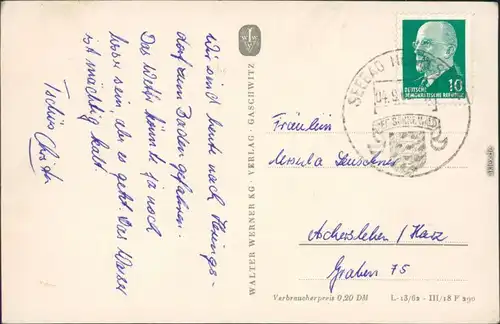 Wir sind heute nach Herings-
dorf zum Baden gefahren.
Das Wetter könnte ja noch
besser sein, aber es geht. Das Wasser
ist mächtig kalt.
Tschüs
WALTER WERNER KG · VERLAG · GASCHWITZ
SEEBAD
DEUTSCHE
DEMOKRATISCHE REPUBLIK
10
Fräulein
Ursula
Aschersleben / Harz
Graben 75
Verbraucherpreis 0,20 DM
L-13/62 - III/18 F 290